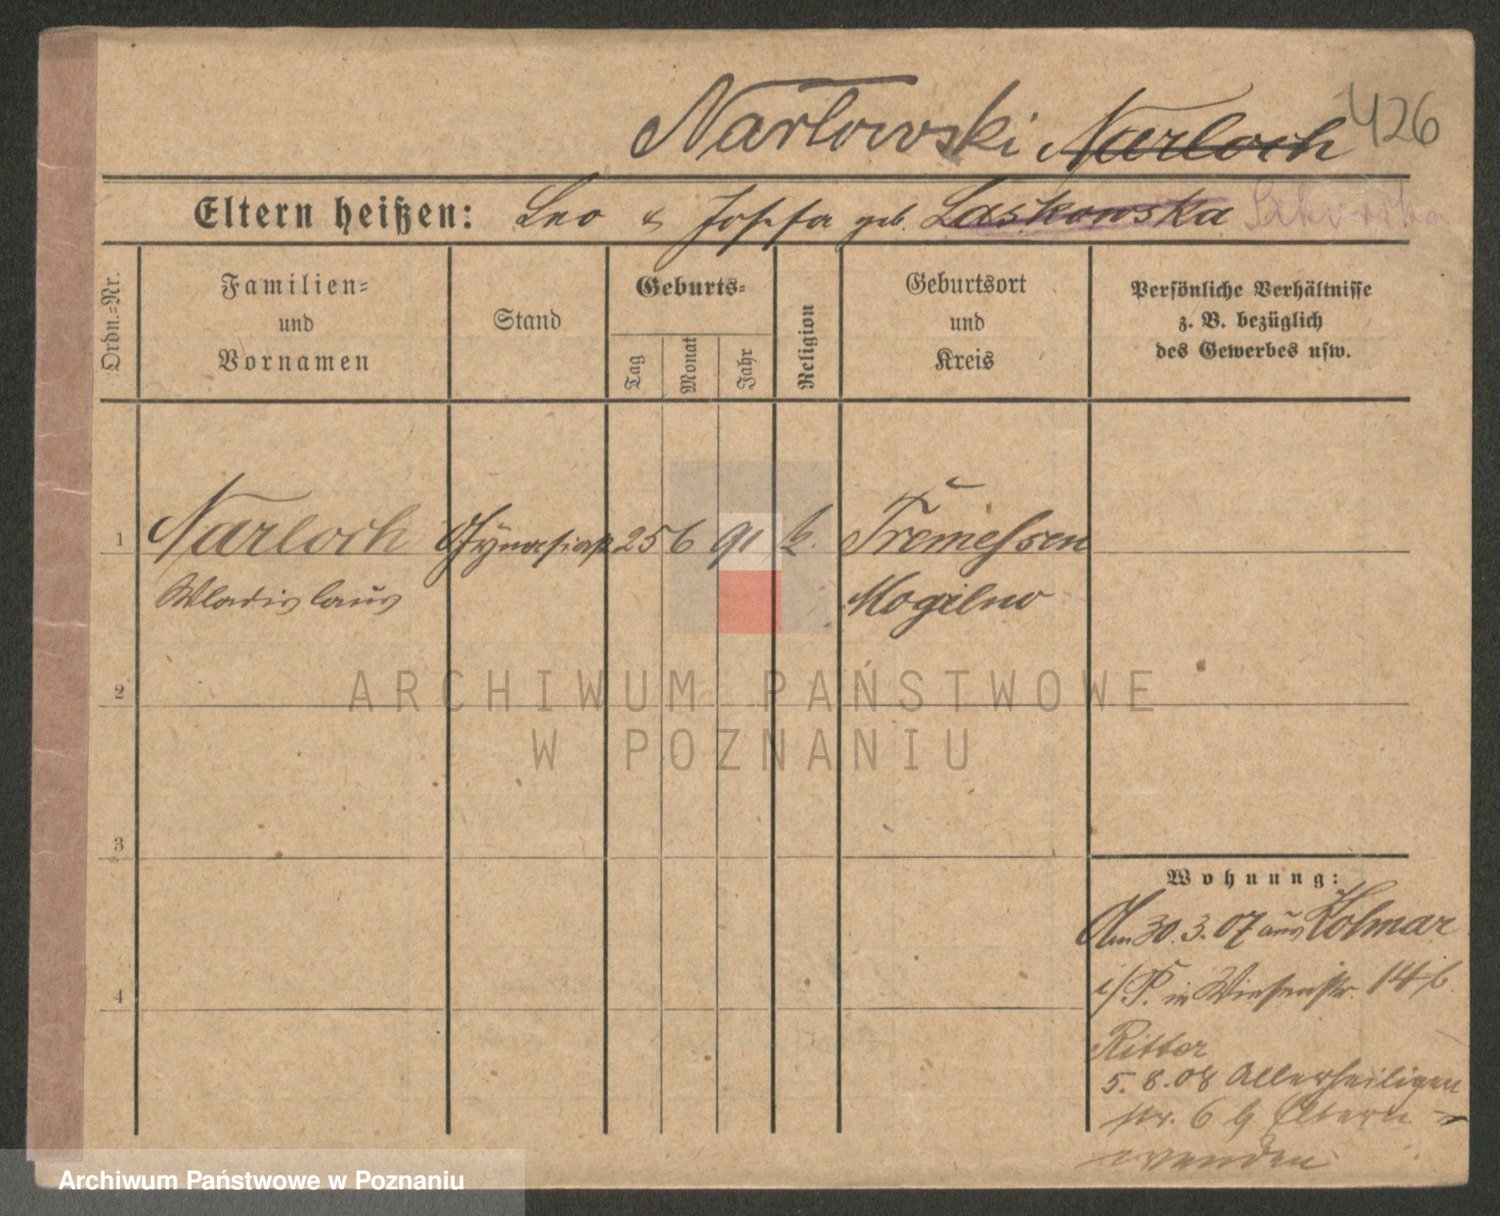 Nartowski Narloch 426
Eltern heißen: Leo & Josefa geb. Laskowska
Ordn.-Nr.
Familien-
und
Vornamen
Stand
Geburts-
Tag
Monat
Jahr
Religion
Geburtsort
und
Kreis
Persönliche Verhältnisse
z. B. bezüglich
des Gewerbes usw.
1 Narloch Gymnasiast 25 6 91 k. Tremessen
Wladislaus Mogilno
2
ARCHIWUM PAŃSTWOWE
W POZNANIU
3
Wohnung:
Am 30.3.07 aus Kolmar
i/P. in Wiesenstr. 14 b.
4
Ritter
5.8.08 Allerheiligen
str. 6 Eltern
Archiwum Państwowe w Poznaniu